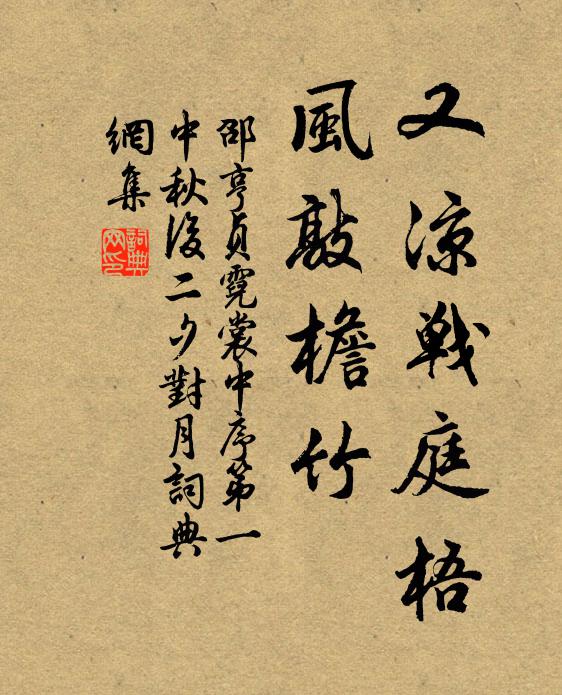 又涼戰庭梧
風敲檐竹
邵亨貞霓裳中序第一
中秋後二夕對月詞典
網集
詞典
网印